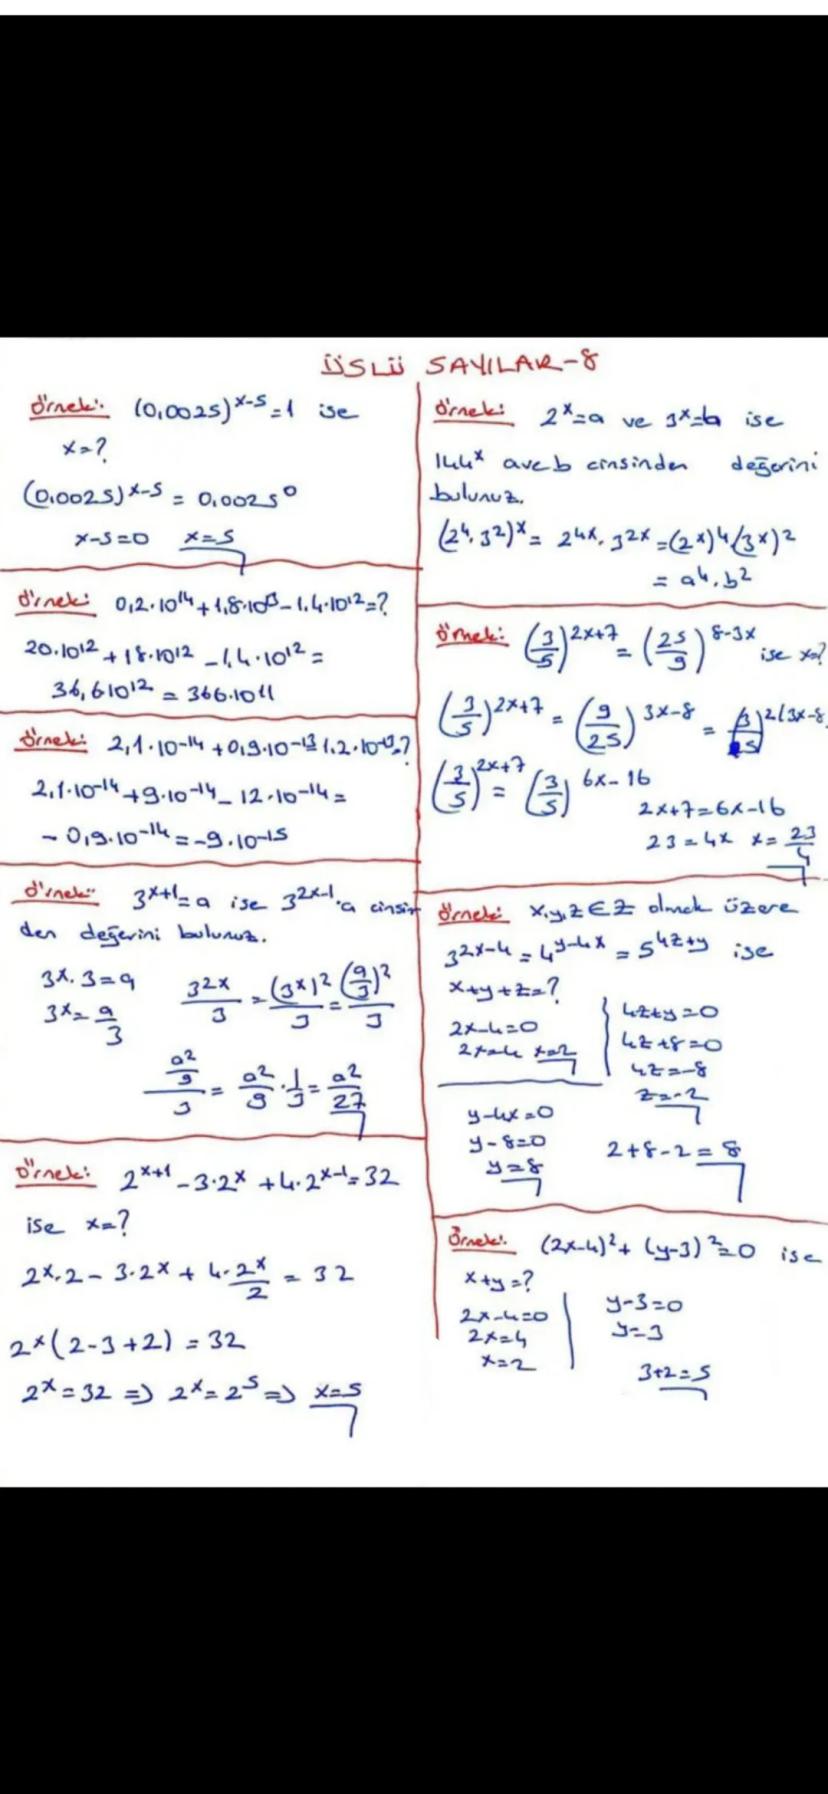 ÜSLÜ SAYILAR-8
Örnek: (0,0025)^x-5 = 1 ise
x=?
(0,0025)^x-5 = 0,0025^0
x-5=0 x=5
Örnek: 0,2.10^14 + 1,8.10^13 - 1,4.10^12 = ?
20.10^12 + 18.10^12 - 1,4.10^12 =
36,6 10^12 = 366.10^11
Örnek: 2,1.10^-14 + 0,9.10^-13 1,2.10^-13 = ?
2,1.10^-14 + 9.10^-14 - 12.10^-14 =
- 0,9.10^-14 = -9.10^-15
Örnek: 3^x+1 = a ise 3^2x-1 . a cinsin
den değerini bulunuz.
3^x.3=a 3^2x/3 = (3^x)^2/3 = (a/3)^2/3
3^x = a/3
a^2/9/3 = a^2/9 . 1/3 = a^2/27
Örnek: 2^x+1 - 3.2^x + 4.2^x-1 = 32
ise x=?
2^x.2 - 3.2^x + 4.2^x/2 = 32
2^x(2-3+2) = 32
2^x = 32 => 2^x = 2^5 => x=5
Örnek: 2^x=a ve 3^x=b ise
144^x a ve b cinsinden değerini
bulunuz.
(2^4.3^2)^x = 2^4x.3^2x = (2^x)^4(3^x)^2
= a^4.b^2
Örnek: (3/5)^2x+7 = (25/9)^8-3x ise x=?
(3/5)^2x+7 = (9/25)^3x-8 = (3/5)^2(3x-8
(3/5)^2x+7 = (3/5)^6x-16
2x+7=6x-16
23=4x x=23/4
Örnek: x,y,z∈Z olmak üzere
3^2x-4 = 4^y-4x = 5^4z+y ise
x+y+z=?
2x-4=0
2x=4 x=2
y-4x=0
y-8=0
y=8
4z+y=0
4z+8=0
4z=-8
z=-2
2+8-2=8
Örnek: (2x-4)^2 + (y-3)^2=0 ise
x+y=?
2x-4=0
2x=4
x=2
y-3=0
y=3
3+2=5